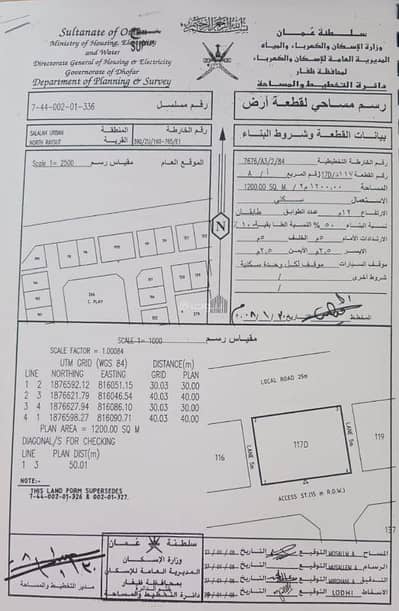 Sultanate of Oman
Ministry of Housing, Electricity
and Water
Directorate General of Housing & Electricity
Governorate of Dhofar
Department of Planning & Survey
سلطنة عمان
وزارة الإسكان والكهرباء والمياه
المديرية العامة للإسكان والكهرباء
لمحافظة ظفار
دائرة التخطيط والمساحة
7-44-002-01-336
رقم مسلسل
رسم مساحي لقطعة أرض
SALALAH URBAN
المنطقة
NORTH RAYSUT
القرية
رقم الخارطة
بيانات القطعة وشروط البناء
Scale 1= 2500
مقياس رسم
الموقع العام
رقم الخارطة التخطيطية 7676/A3/2/84
رقم القطعة 117D/د١١٧ رقم المربع A / أ
المساحة 1200.00 SQ. M / ١٢٠٠,٠٠ م٢
الاستعمال سكني
الارتفاع ١٢م عدد الطوابق طابقان
نسبة البناء ٥٠%
الارتدادات الأمام ٥م الخلف ٥م
الأيسر ٢,٥م الأيمن ٢,٥م
موقف السيارات موقف لكل وحدة سكنية
شروط أخرى /
N
المخطط
التاريخ
SCALE 1= 1000
مقياس رسم
SCALE FACTOR = 1.00084
UTM GRID (WGS 84) DISTANCE(m)
LINE NORTHING EASTING GRID PLAN
1 2 1876592.12 816051.15 30.03 30.00
2 3 1876621.79 816046.54 40.03 40.00
3 4 1876627.94 816086.10 30.03 30.00
4 1 1876598.27 816090.71 40.03 40.00
PLAN AREA = 1200.00 SQ M
DIAGONAL/S FOR CHECKING
LINE PLAN DIST(m)
1 3 50.01
NOTE:-
THIS LAND FORM SUPERSEDES
7-44-002-01-326 & 002-01-327.
LOCAL ROAD 25m
LANE 5m
117D
LANE 5m
119
116
ACCESS ST.(15 m R.O.W.)
137
سلطنة عمان
وزارة الإسكان
المديرية العامة للإسكان
بمحافظة ظفار
دائرة التخطيط والمساحة
مدير التخطيط والمساحة
المساح MOSALM A. التوقيع التاريخ
الرسام MUSALEM A. التوقيع التاريخ
التدقيق MIRDHAH A. التوقيع التاريخ
الاسقاط LODHI التوقيع التاريخ